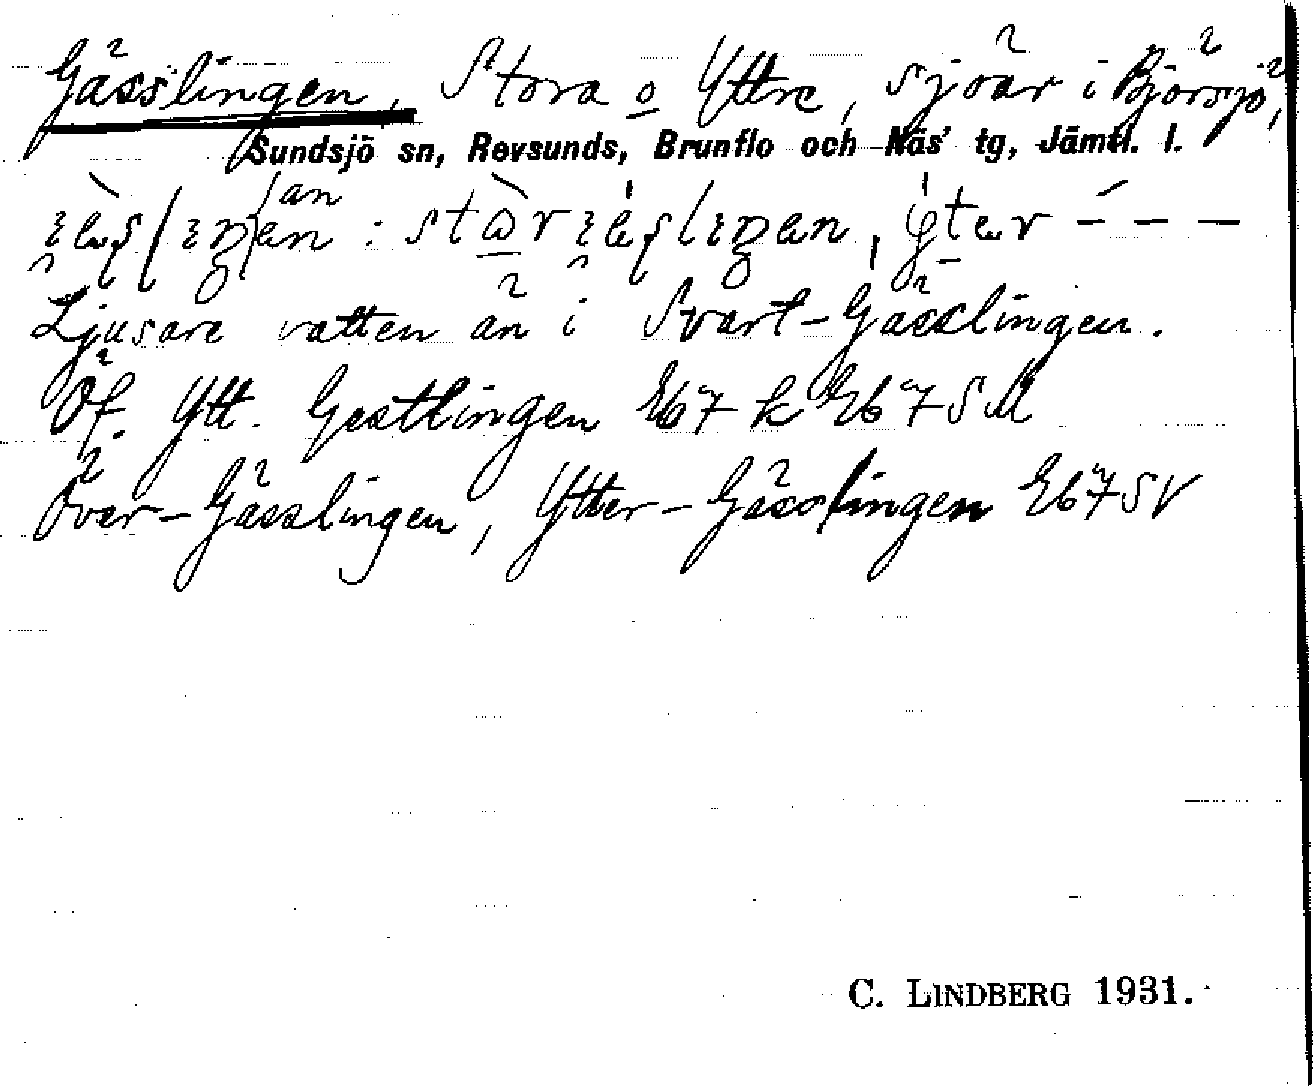 Gässlingen, Stora o Yttre, sjöar i Björsjö,
Sundsjö sn, Revsunds, Brunflo och Näs' tg, Jämtl. l.
Ljusare vatten än i Svart-Gässlingen.
Öf. Ytt. Gestlingen Eb7 k Eb7SM
Över-Gässlingen, Ytter-Gässlingen Eb7SV
C. LINDBERG 1931.